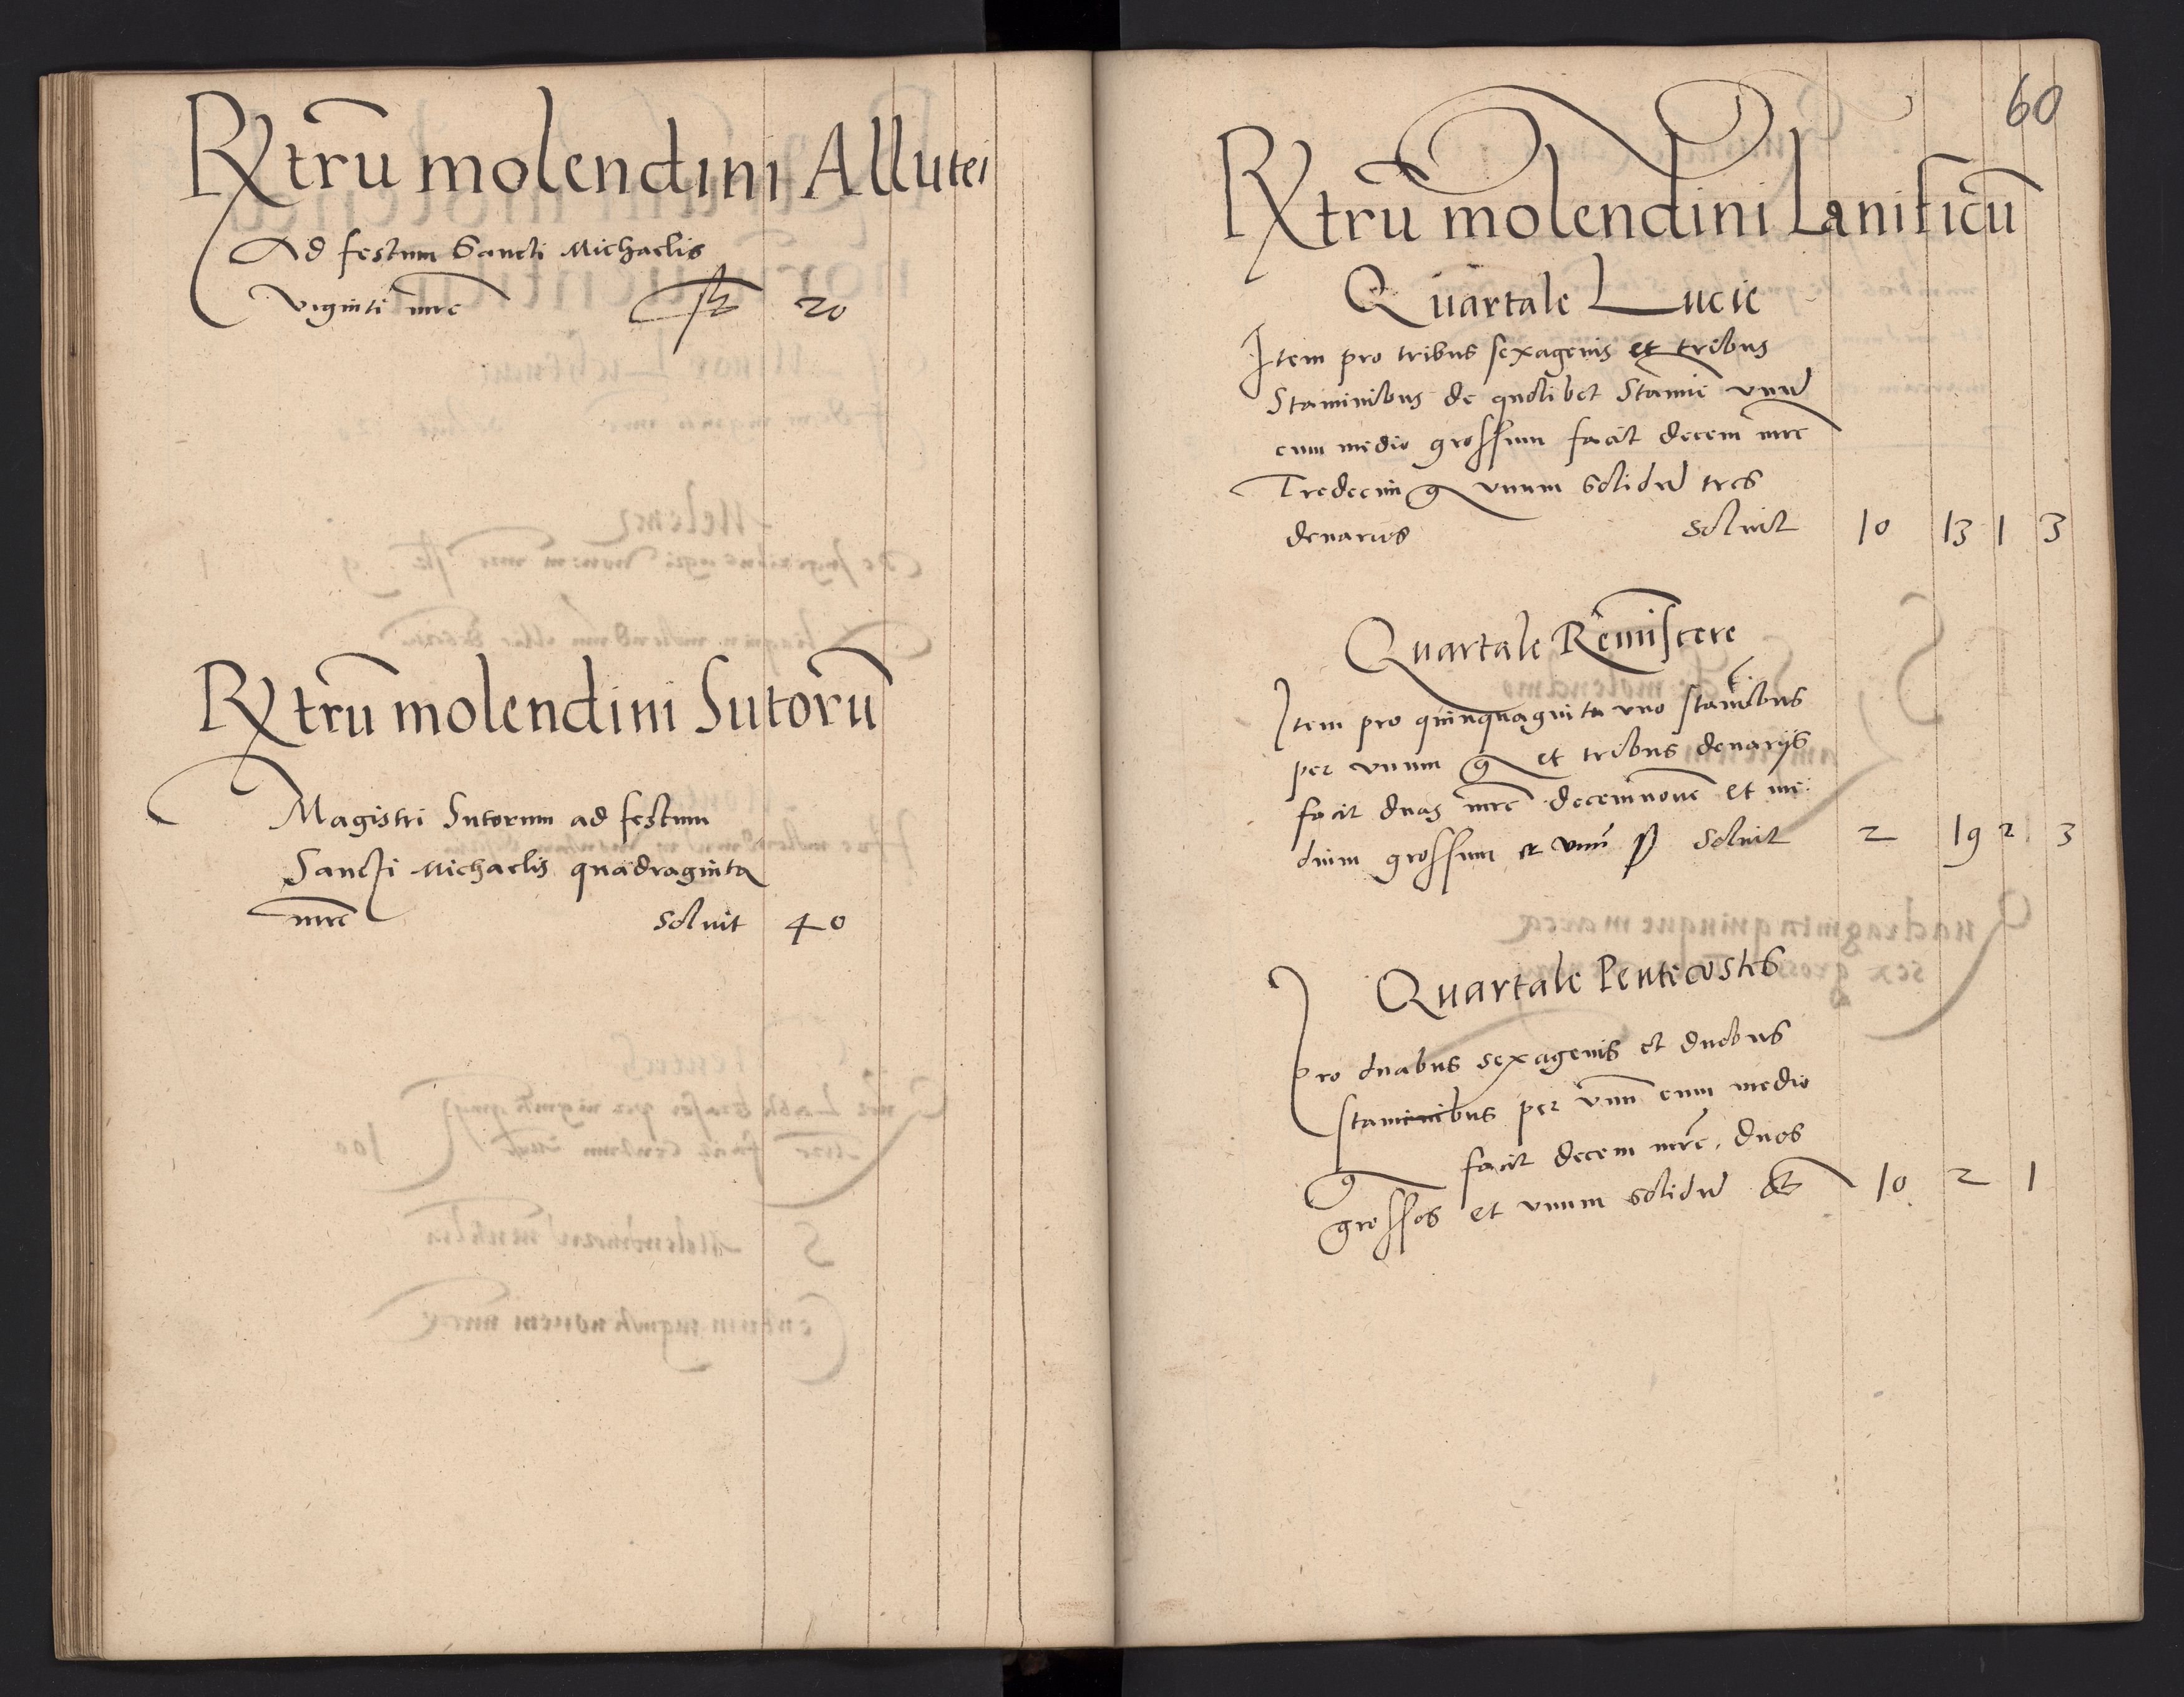 Rxtrũ molendini Allutei
Ad festum Sancti Michaelis
viginti mrc 20
Rxtrũ molendini Sutorũ
Magistri Sutorum ad festum
Sancti Michaelis quadraginta
mrc soluit 40
60
Rxtrũ molendini Lanificũ
Quartale Lucie
Item pro tribus sexagenis et tribus
Staminibus de quolibet Stamĩe vnũ
cum medio grossum facit decem mrc
Tredecim g vnum solidũ tres
denarios soluit 10 13 1 3
Quartale Remiscere
Item pro quinquaginta vno stamĩbus
per vnum g et tribus denarijs
facit duas mrc decemnouẽ et me:
dium grossum et vnũ soluit 2 19 2 3
Quartale Pentecostes
Pro duabus sexagenis et duobus
staminibus per vnũ cum medio
g facit decem mrc. duos
grossos et vnum solidũ 10 2 1